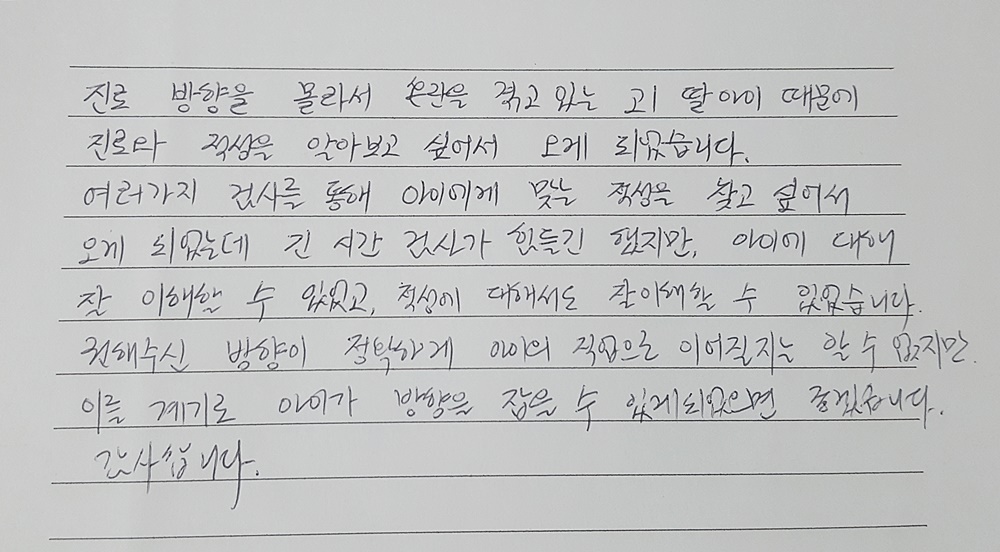 진로 방향을 몰라서 혼란을 겪고 있는 고1 딸아이 때문에
진로와 적성을 알아보고 싶어서 오게 되었습니다.
여러가지 검사를 통해 아이에게 맞는 적성을 찾고 싶어서
오게 되었는데 긴 시간 검사가 힘들긴 했지만, 아이에 대해
잘 이해할 수 있었고, 적성에 대해서도 잘이해할 수 있었습니다.
권해주신 방향이 정확하게 아이의 직업으로 이어질지는 알 수 없지만
이를 계기로 아이가 방향을 잡을 수 있게되었으면 좋겠습니다.
감사합니다.